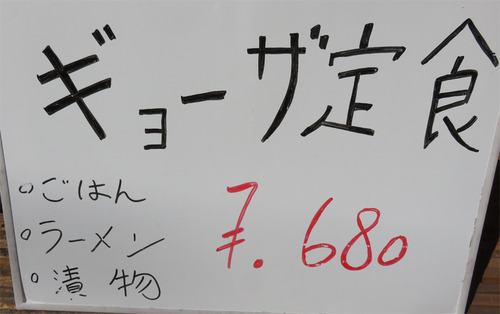 ギョーザ定食
○ごはん
○ラーメン
○漬物
¥.680